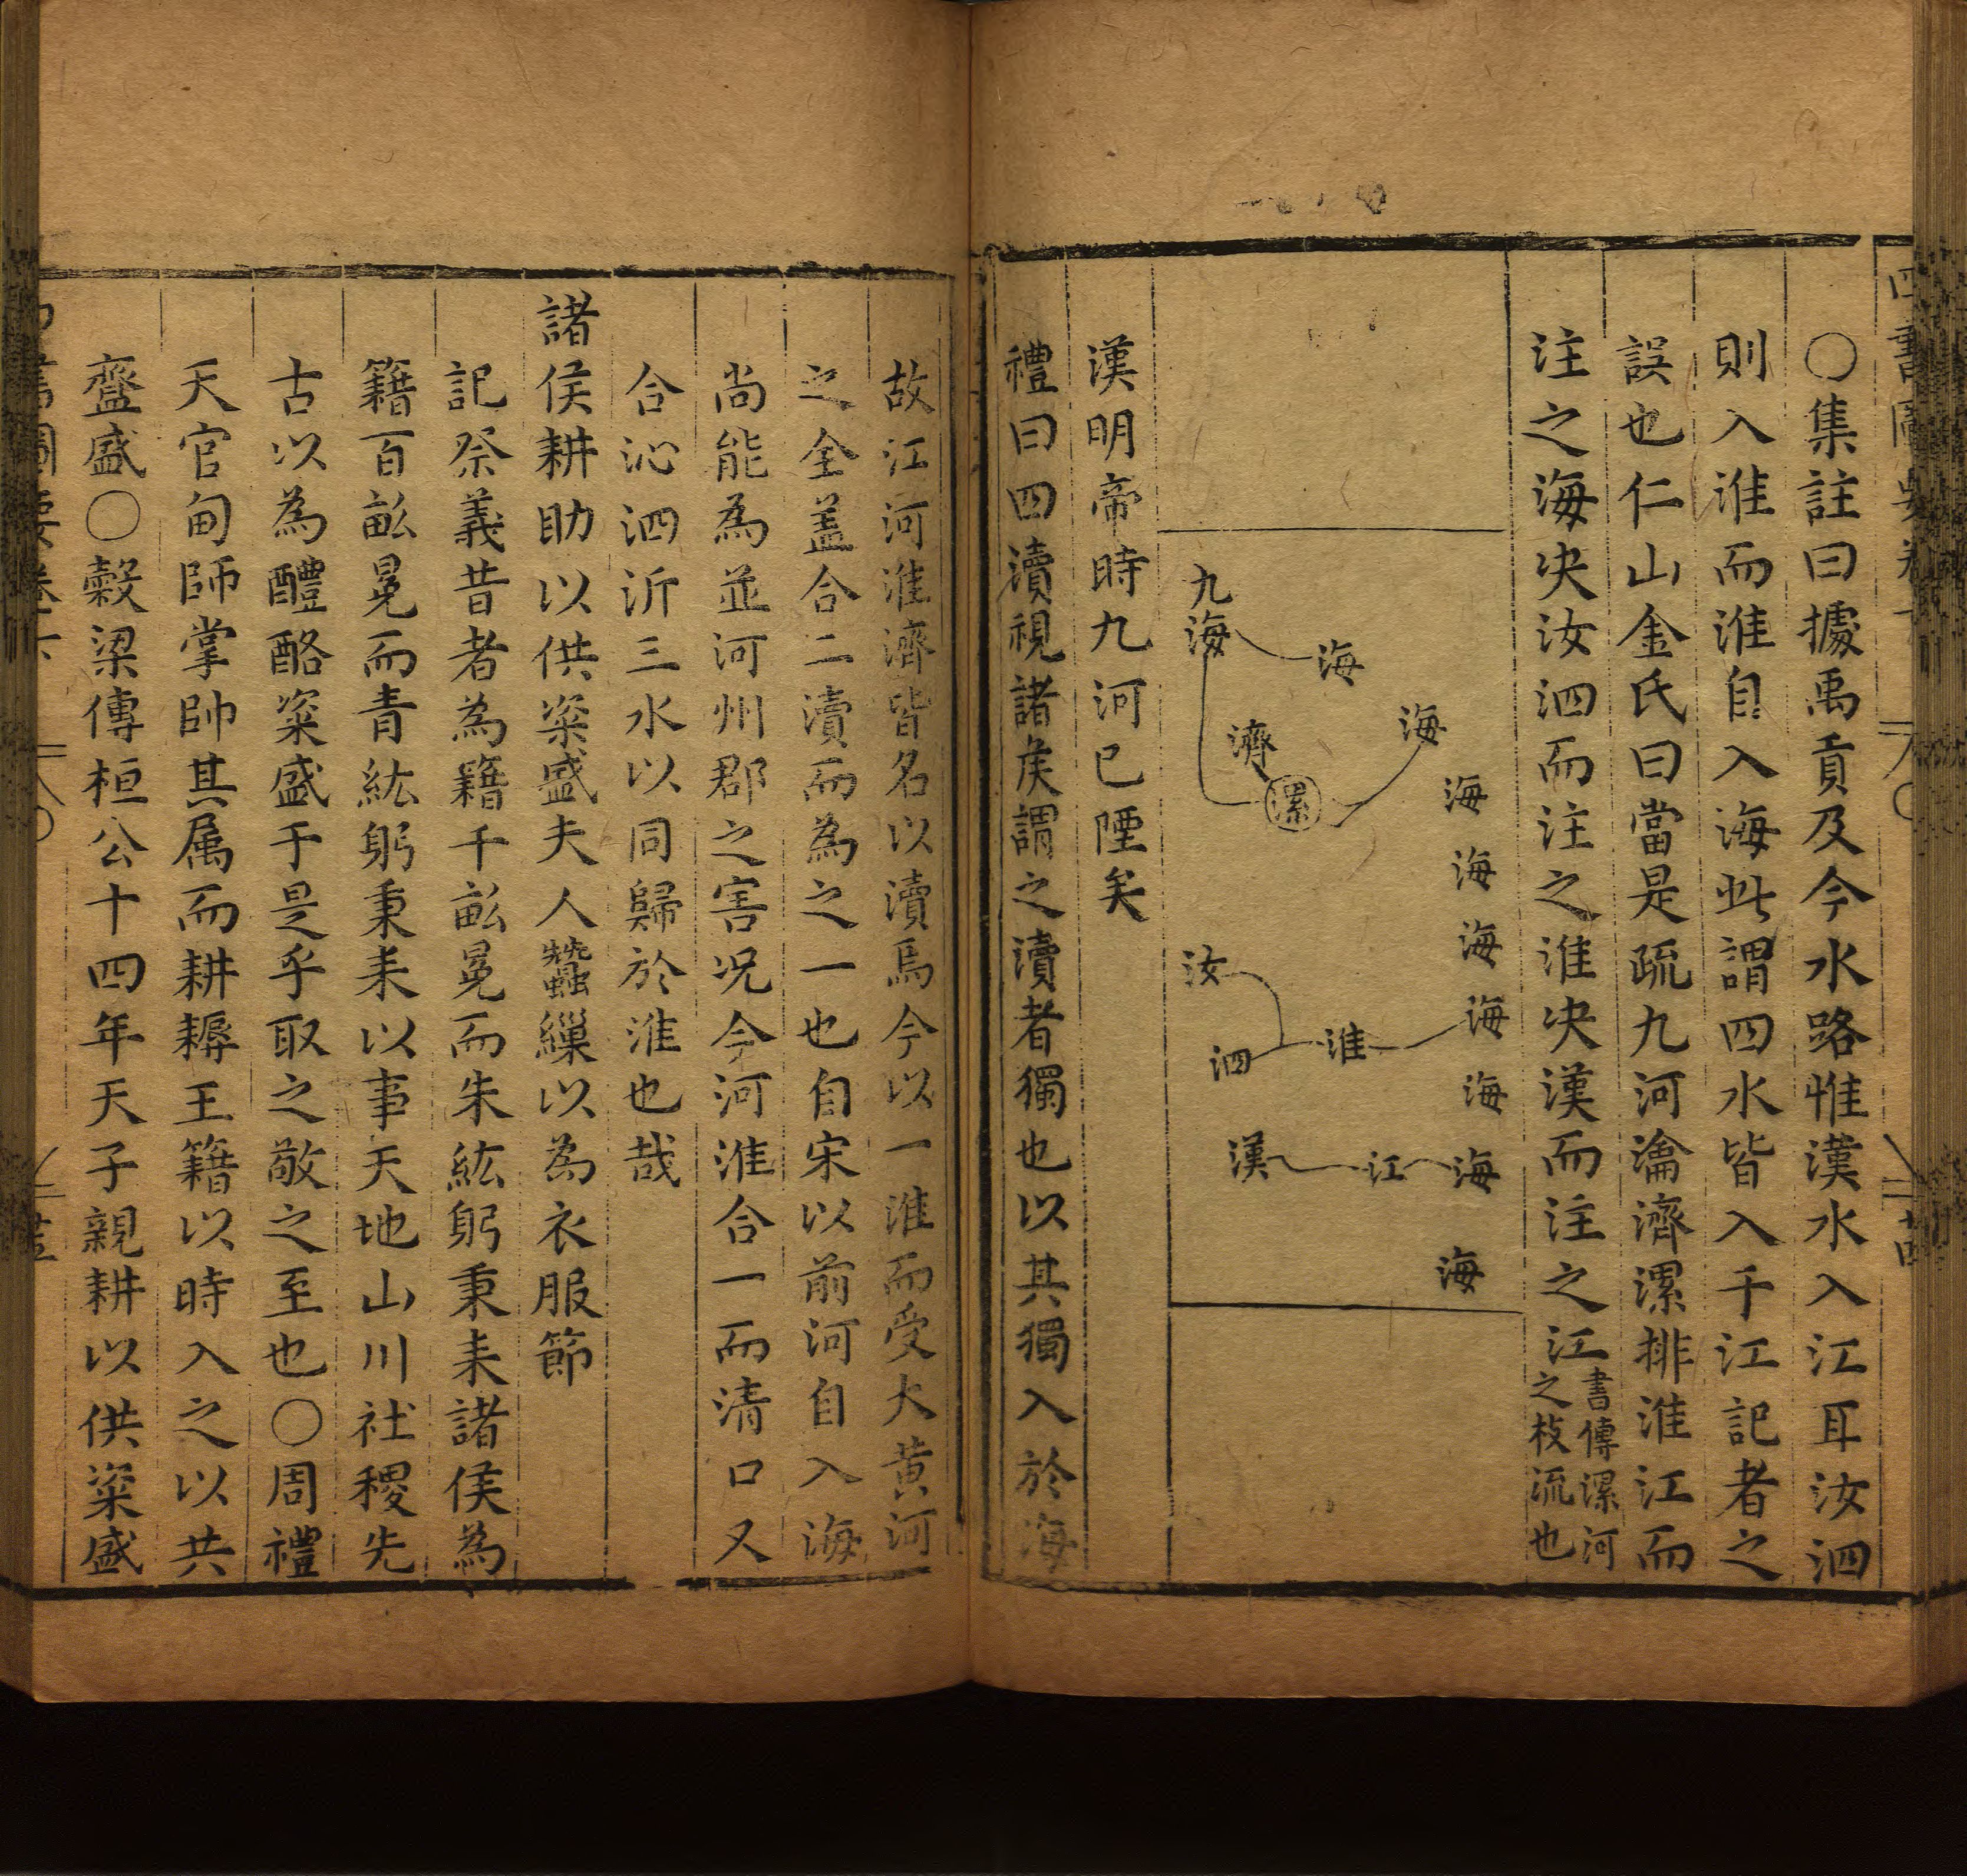 ○集註曰據禹貢及今水路惟漢水入江耳汝泗
則入淮而淮自入海此謂四水皆入于江記者之
誤也仁山金氏曰當是疏九河瀹濟漯排淮江而
注之海决汝泗而注之淮决漢而注之江書傳漯河之枝流也
九海
海
濟
漯
海
海
海
海
汝
泗
淮
海
海
漢
江
海
海
漢明帝時九河已陻矣
禮曰四瀆視諸矦謂之瀆者獨也以其獨入於海
故江河淮濟皆名以瀆焉今以一淮而受大黄河
之全盖合二瀆而為之一也自宋以前河自入海
尚能為並河州郡之害况今河淮合一而清口又
合沁泗沂三水以同歸於淮也哉
諸侯耕助以供粢盛夫人蠶繅以為衣服節
記祭義昔者為籍千畝冕而朱紘躬秉耒諸侯為
籍百畝冕而青紘躬秉耒以事天地山川社稷先
古以為醴酪粢盛于是乎取之敬之至也○周禮
天官甸師掌帥其属而耕耨王籍以時入之以共
齍盛○穀梁傳桓公十四年天子親耕以供粢盛